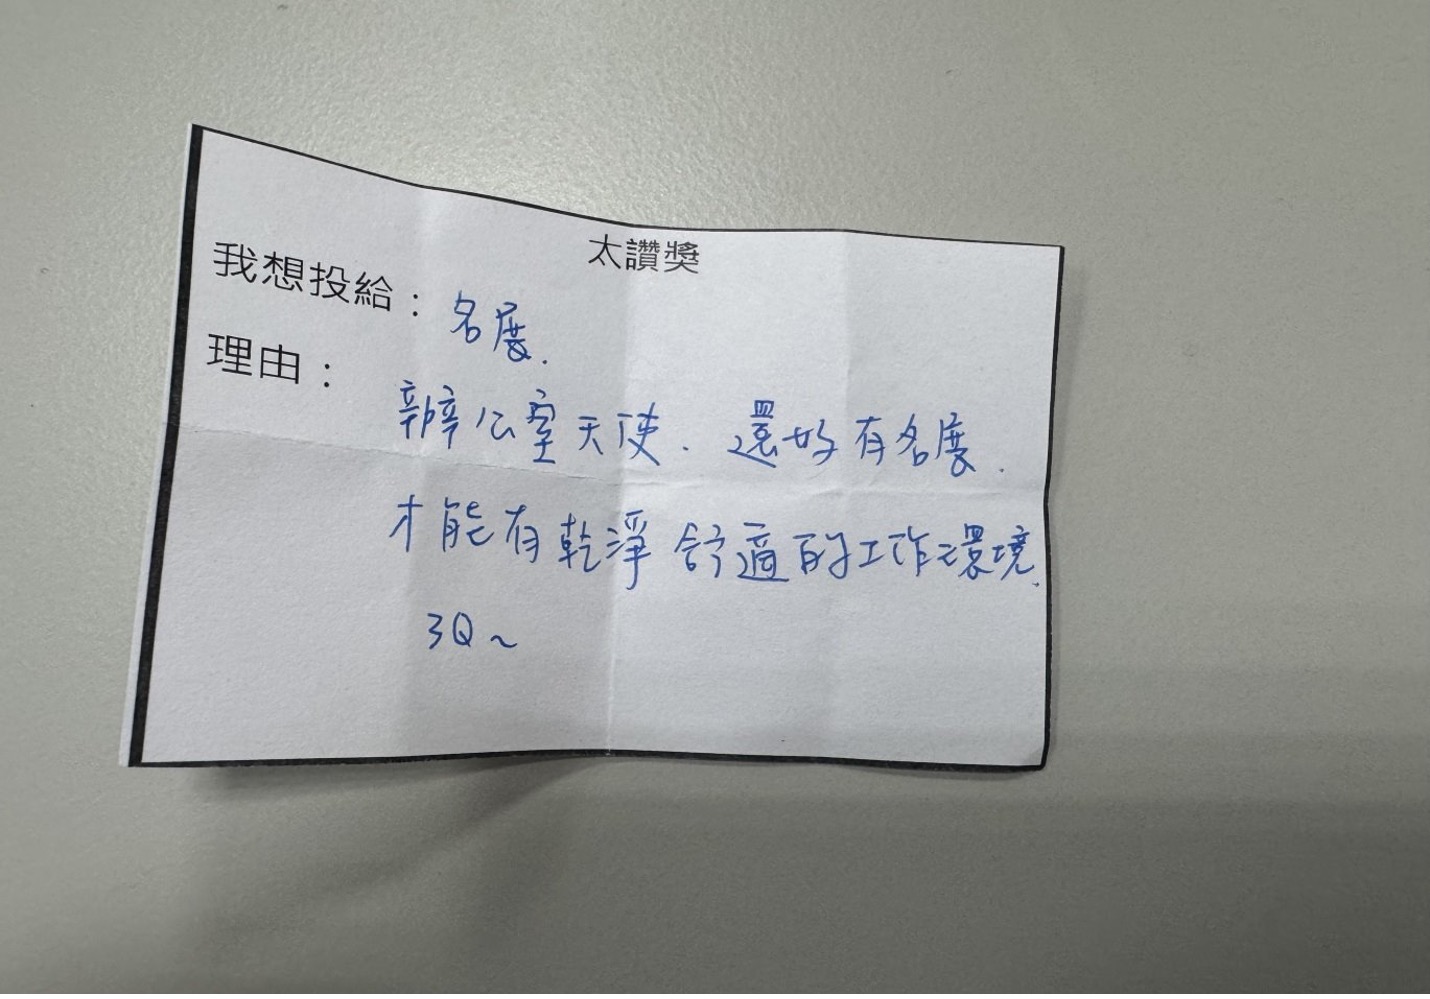 太讚獎
我想投給：名度.
理由：
辦公室天使. 還好有名度.
才能有乾淨 舒適的工作環境.
3Q~